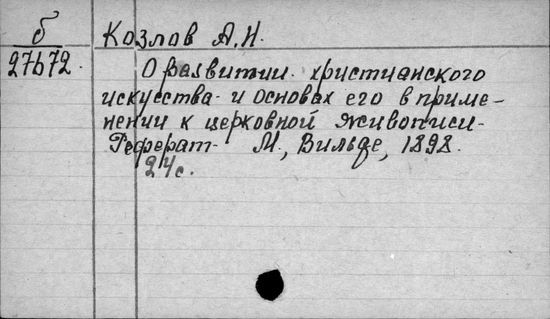 б Козлов А.И.
27672. О развитии христианского
искусства и основах его в приме-
нении к церковной живописи.
Реферат. М., Вильде, 1898.
24с.